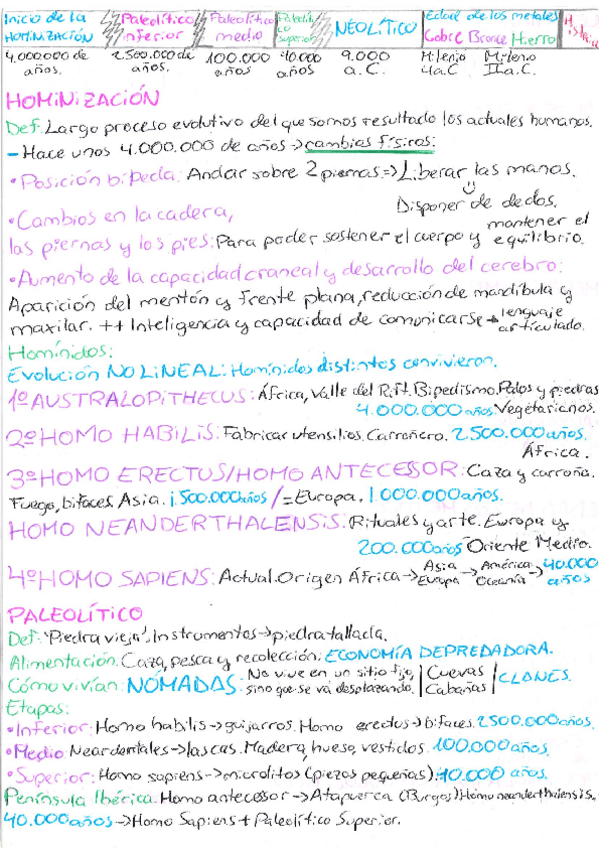 Inicio de la HOMINIZACIÓN
Paleolítico inferior
Paleolítico medio
Paleolítico superior
NEOLÍTICO
Edad de los metales
Cobre Bronce Hierro
4.000.000 de años.
2.500.000 de años.
100.000 años
40.000 años
9.000 a.C.
Milenio II a.C.
HOMINIZACIÓN
Def: Largo proceso evolutivo del que somos resultado los actuales humanos.
- Hace unos 4.000.000 de años → cambios físicos:
• Posición bípeda: Andar sobre 2 piernas => Liberar las manos.
Disponer de dedos.
• Cambios en la cadera,
las piernas y los pies: Para poder sostener el cuerpo y mantener el equilibrio.
• Aumento de la capacidad craneal y desarrollo del cerebro:
Aparición del mentón y frente plana, reducción de mandíbula y
maxilar. ++ Inteligencia y capacidad de comunicarse → lenguaje articulado.
Homínidos:
Evolución NO LINEAL: Homínidos distintos convivieron.
1º AUSTRALOPITHECUS: África, Valle del Rift. Bipedismo. Palos y piedras
4.000.000 años Vegetarianos.
2º HOMO HABILIS: Fabricar utensilios. Carroñero. 2.500.000 años.
África.
3º HOMO ERECTUS/HOMO ANTECESSOR: Caza y carroña.
Fuego, bifaces. Asia. 1.500.000 años / = Europa. 1.000.000 años.
HOMO NEANDERTHALENSIS: Rituales y arte. Europa y
200.000 años Oriente Medio.
4º HOMO SAPIENS: Actual. Origen África → Asia Europa → América Oceanía → 40.000 años
PALEOLÍTICO
Def: "Piedra vieja". Instrumentos → piedra tallada.
Alimentación: Caza, pesca y recolección: ECONOMÍA DEPREDADORA.
Cómo vivían: NÓMADAS. No vive en un sitio fijo, sino que se va desplazando. | Cuevas Cabañas | CLANES.
Etapas:
• Inferior: Homo habilis → guijarros. Homo erectus → bifaces. 2.500.000 años.
• Medio: Neardentales → lascas. Madera, hueso, vestidos. 100.000 años.
• Superior: Homo sapiens → microlitos (piezas pequeñas). 40.000 años.
Península Ibérica: Homo antecessor → Atapuerca (Burgos) Homo neanderthalensis.
40.000 años → Homo Sapiens + Paleolítico Superior.